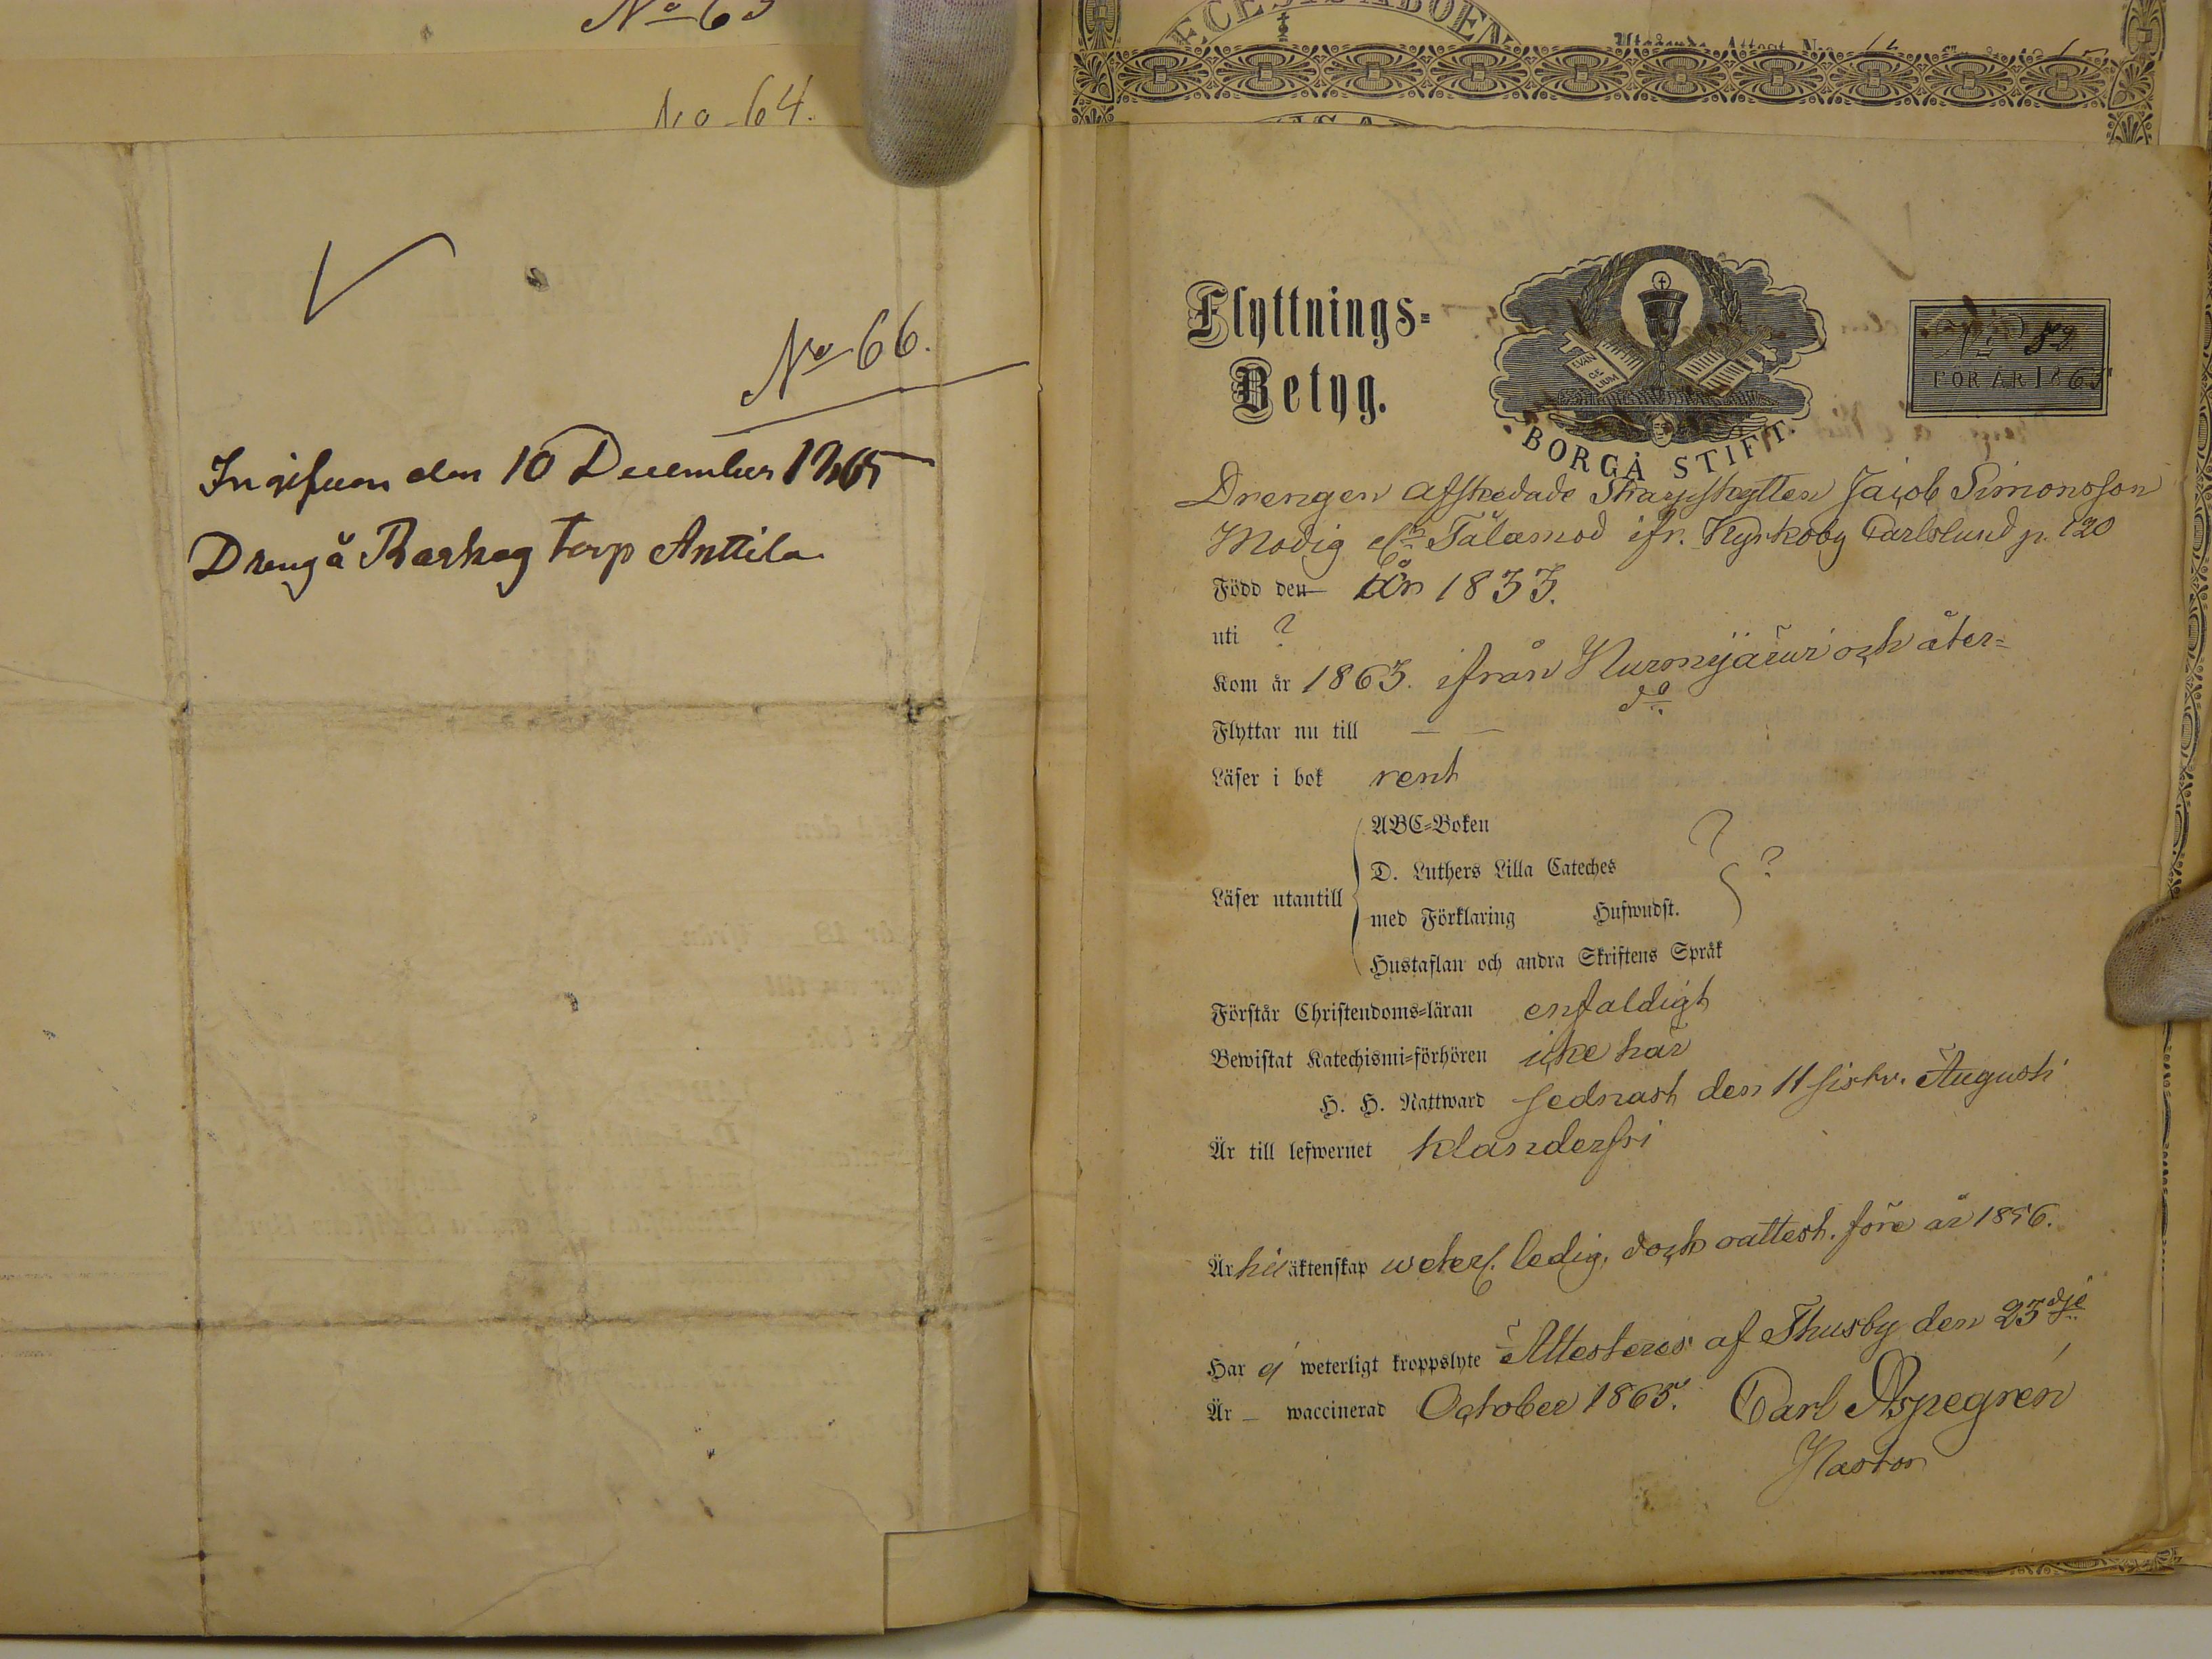 No 63
No 64.
No 66.
Ingifven den 10 December 1865
Dreng å Raskog torp Anttila
ECESIS ABOEN
Utgående Attest No
Flyttnings-
Betyg.
EVAN
GE
LIUM
BORGÅ STIFT.
No 82
FÖR ÅR 1865
Drengen afskedade Skarpskytten Jacob Simonsson
Modig elr Tålamod ifr. Kyrkoby Carlslund p. 120
Född den År 1833.
uti ?
Kom år 1863. ifrån Nurmijärvi och åter-
Flyttar nu till do
Läser i bok rent
Läser utantill
ABC-Boken
D. Luthers Lilla Cateches
med Förklaring Hufwudst.
Hustaflan och andra Skriftens Språk
? ?
Förstår Christendoms-läran enfaldigt
Bewistat Katechismi-förhören icke här
H. H. Nattward sednast den 11 sistv. Augusti
Är till lefwernet klanderfri
Är till äktenskap weterl. ledig, dock oattest. före år 1856.
Har ej weterligt kroppslyte Attesteras af Thusby den 23dje
Är – waccinerad October 1865. Carl Aspegren
Pastor